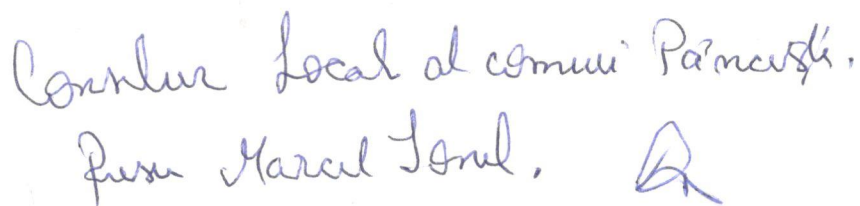 Consilier Local al comunei Pâncești.
Rusu Marcel Ionel.